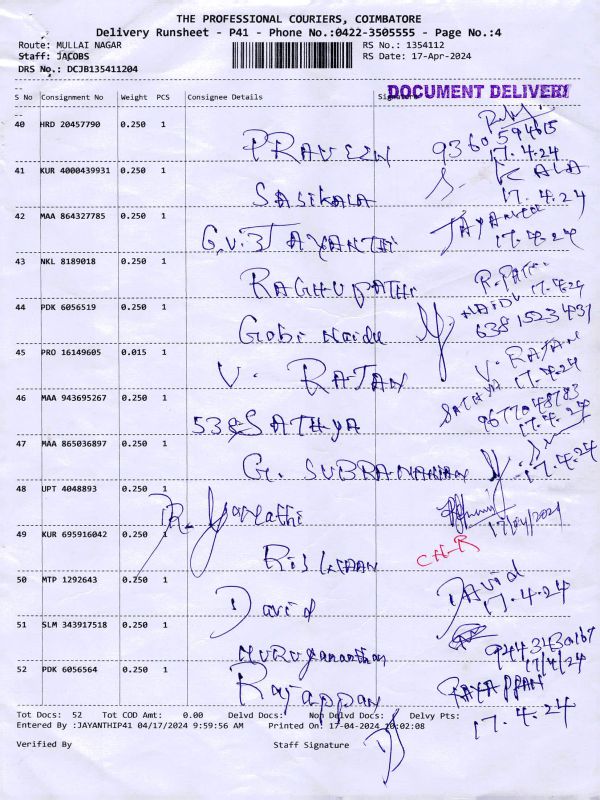 THE PROFESSIONAL COURIERS, COIMBATORE
Delivery Runsheet - P41 - Phone No.:0422-3505555 - Page No.:4
Route: MULLAI NAGAR RS No.: 1354112
Staff: JACOBS RS Date: 17-Apr-2024
DRS No.: DCJB135411204
DOCUMENT DELIVERY
S No Consignment No Weight PCS Consignee Details Signature
40 HRD 20457790 0.250 1 PRAVEEN 9360594615 17.4.24
41 KUR 4000439931 0.250 1 SASIKALA S. KALA 17.4.24
42 MAA 864327785 0.250 1 G.V.J JAYANTHI JAYANTHI 17.4.24
43 NKL 8189018 0.250 1 RAGHUPATHI R.PATHI 17.4.24
44 PDK 6056519 0.250 1 Gobi Naidu NAIDU 6381523431
45 PRO 16149605 0.015 1 V. RAJAN V. RAJAN 17.4.24
46 MAA 943695267 0.250 1 538 SATHYA SATHYA 9677048783 17.4.24
47 MAA 865036897 0.250 1 G. SUBRAMANIAN 17.4.24
48 UPT 4048893 0.250 1 17/04/2024
49 KUR 695916042 0.250 1 CH-R
50 MTP 1292643 0.250 1 David DAVID 17.4.24
51 SLM 343917518 0.250 1 Murugananthan 9443430167 17/4/24
52 PDK 6056564 0.250 1 Rayappan RAYAPPAN 17.4.24
Tot Docs: 52 Tot COD Amt: 0.00 Delvd Docs: Non Delvd Docs: Delvy Pts:
Entered By :JAYANTHIP41 04/17/2024 9:59:56 AM Printed On: 17-04-2024 10:02:08
Verified By Staff Signature